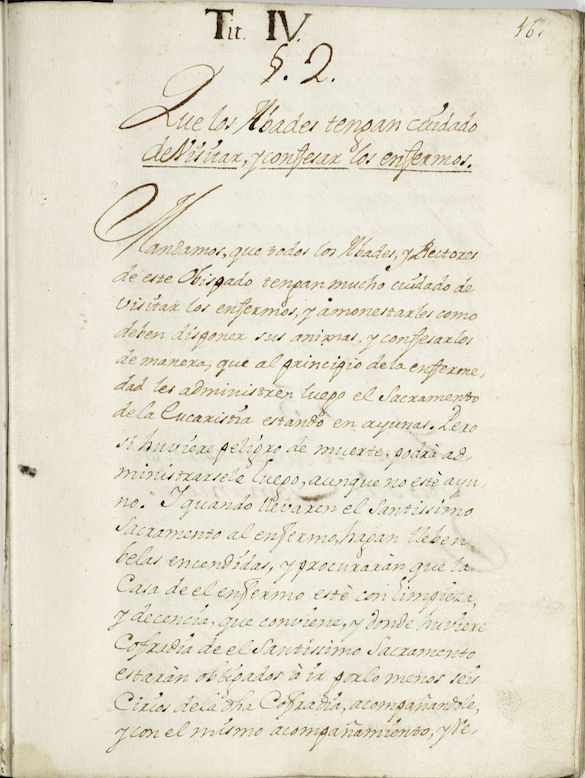 Tit. IV.
16.
§. 2.
Que los Abades tengan cuidado
de Visitar, y confesar los enfermos.
Mandamos, que todos los Abades, y Rectores
de este Obispado tengan mucho cuidado de
visitar los enfermos, y amonestarles como
deben disponer sus animas, y confesarlos
de manera, que al principio de la enferme,
dad les administren luego el Sacramento
de la Eucaristia estando en ayunas. Pero
si huviere peligro de muerte, podrà ad,
ministrarsele luego, aunque no estè ayu,
no. I quando llevaren el Santissimo
Sacramento al enfermo, hagan lleben
belas encendidas, y procuraràn que la
Casa de el enfermo estè con limpieza,
y decencia, que conviene, y donde huviere
Cofradia de el Santissimo Sacramento
estaràn obligados à ir por lo menos seis
Cirios de la dha Cofradia, acompañandole,
y con el mismo acompañamiento, y Ve,